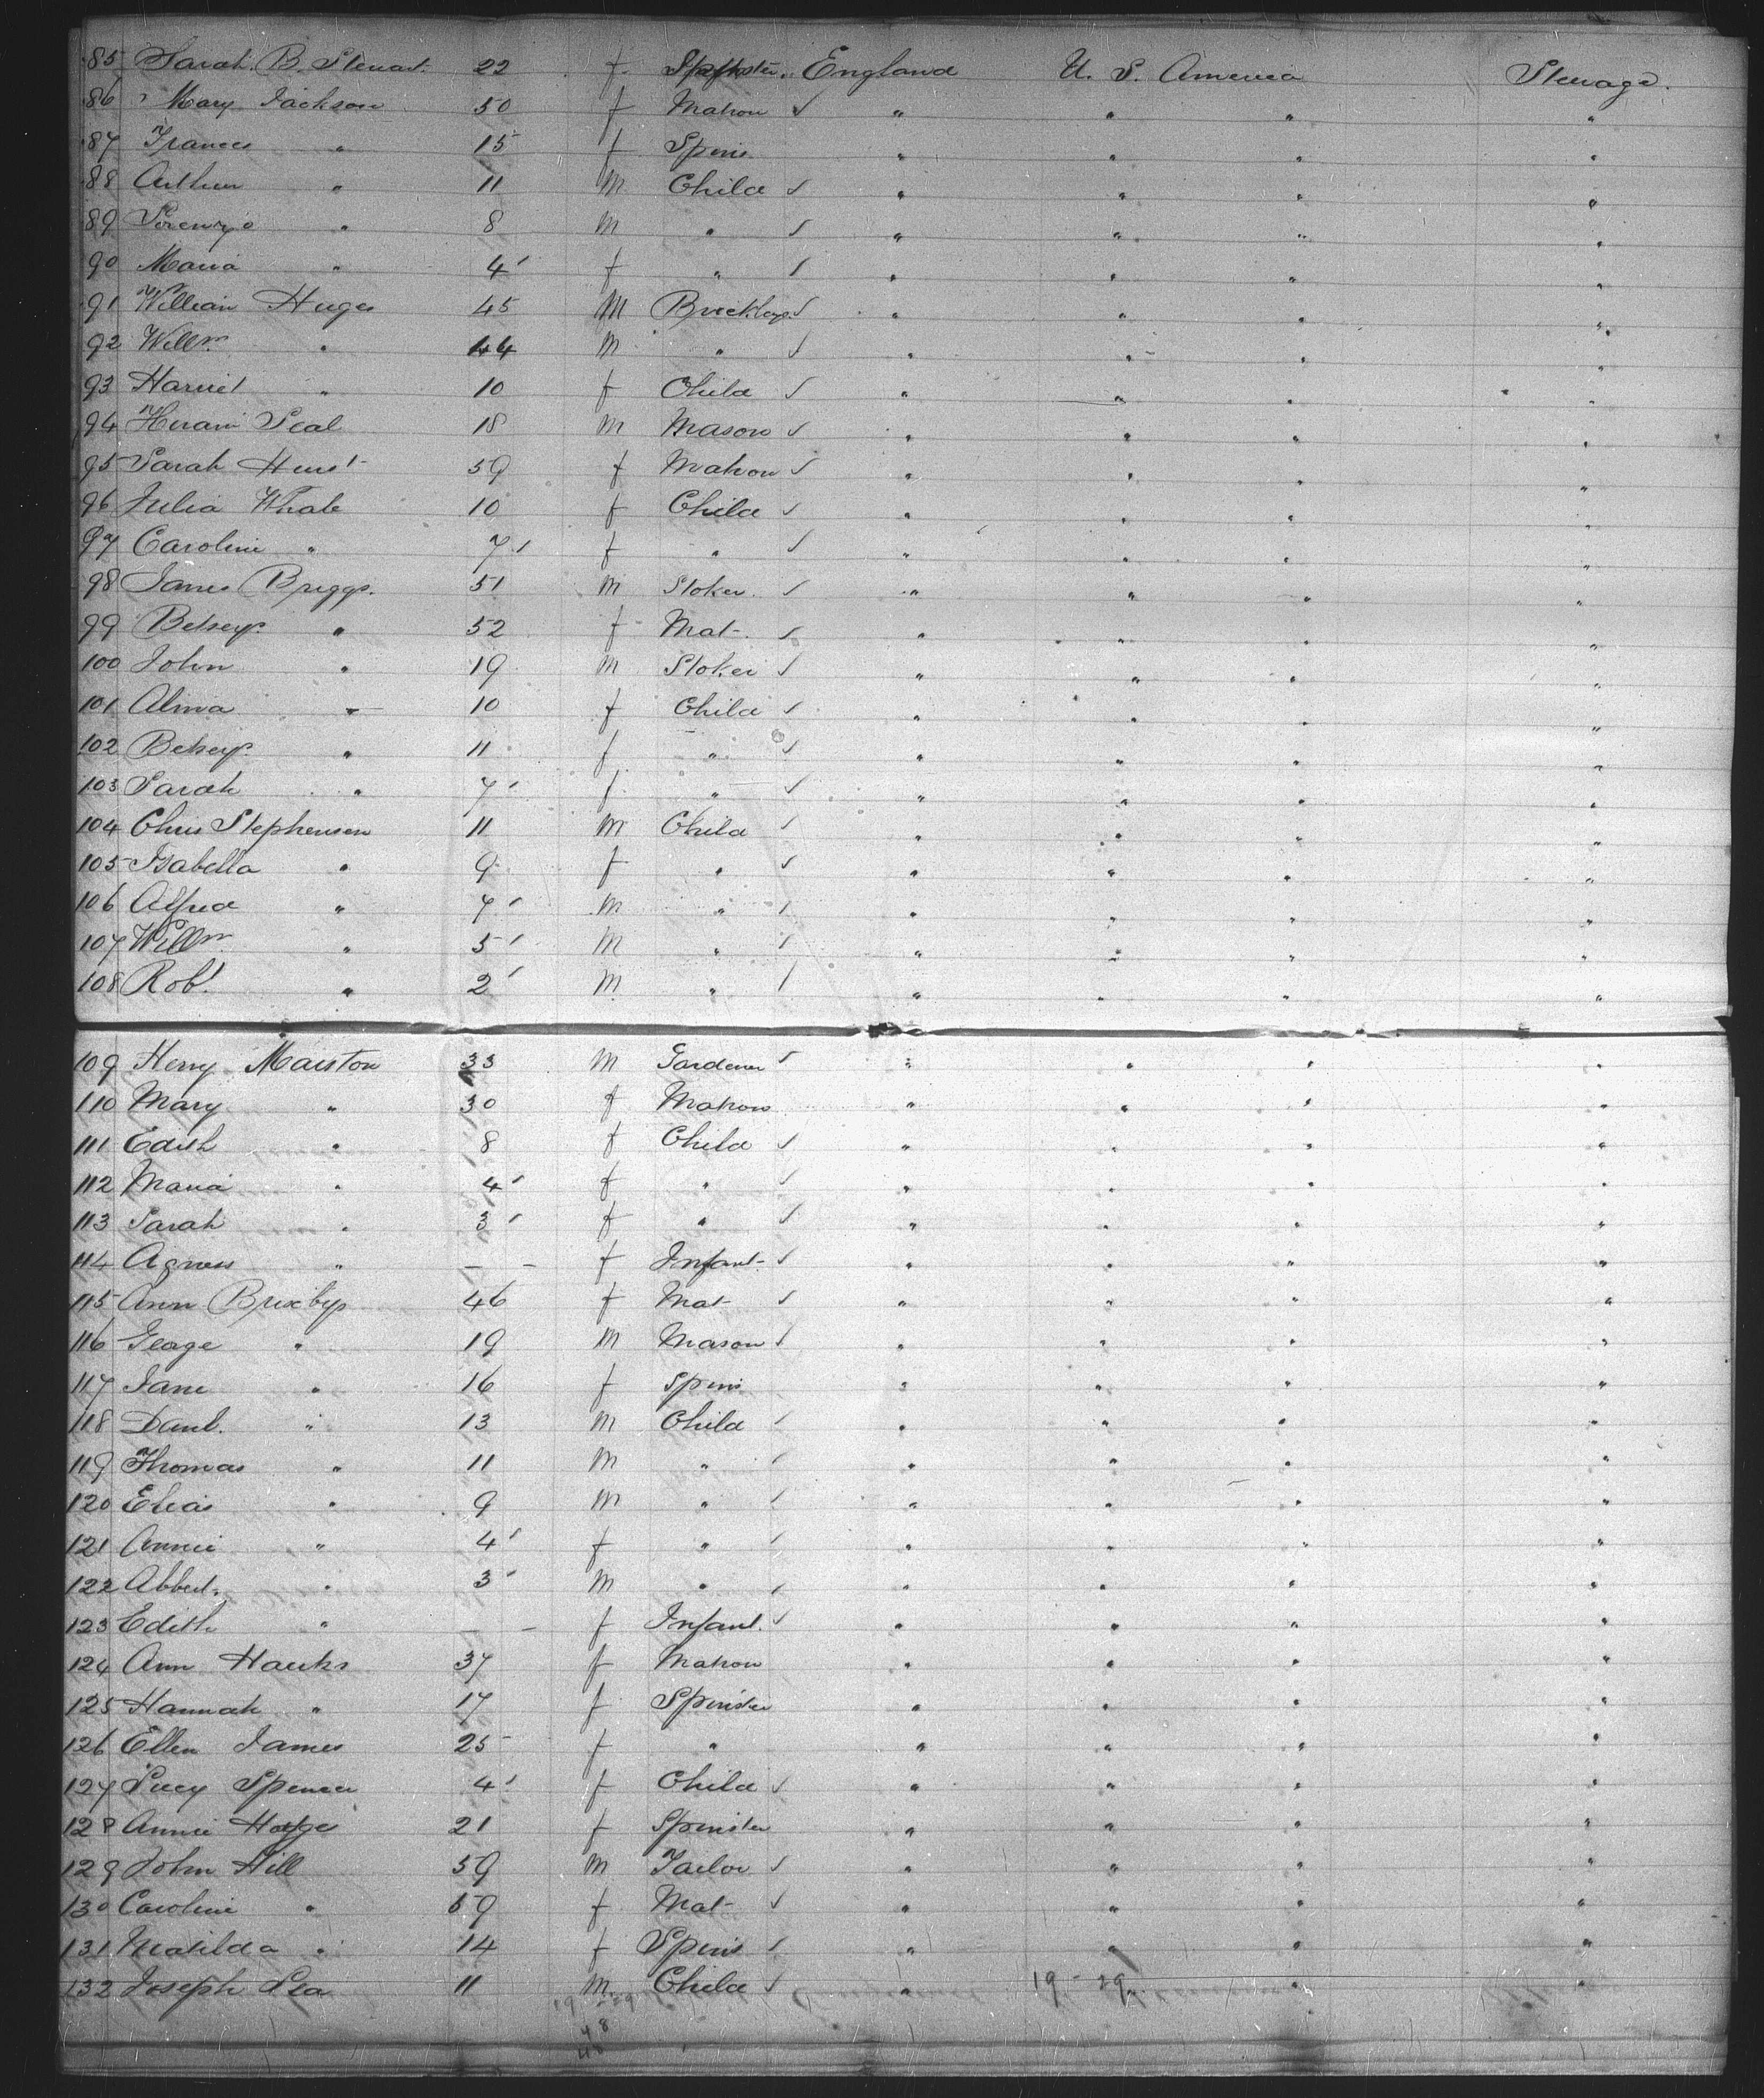 85 Sarah B. Stewart. 22 f Spinster England U. S. America Steerage.
86 Mary Jackson 50 f Matron ✓ " " " "
87 Frances " 15 f Spins " " " "
88 Arthur " 11 M Child ✓ " " " "
89 Lorenzo " 8 M " ✓ " " " "
90 Maria " 4 f " ✓ " " " "
91 William Huges 45 M Bricklayr ✓ " " " "
92 Willm " 44 M " ✓ " " " "
93 Harriet " 10 f Child ✓ " " " "
94 Hiram Seal 18 M Mason ✓ " " " "
95 Sarah Hurst 59 f Matron ✓ " " " "
96 Julia Whale 10 f Child ✓ " " " "
97 Caroline " 7 f " ✓ " " " "
98 James Briggs. 51 M Stoker ✓ " " " "
99 Betsey " 52 f Mat- ✓ " " " "
100 John " 19 M Stoker ✓ " " " "
101 Alma " 10 f Child ✓ " " " "
102 Betsey " 11 f " ✓ " " " "
103 Sarah " 7 f " ✓ " " " "
104 Chris Stephenson 11 M Child ✓ " " " "
105 Isabella " 9 f " ✓ " " " "
106 Alfred " 7 M " ✓ " " " "
107 Willm " 5 M " ✓ " " " "
108 Robt " 2 M " ✓ " " " "
109 Henry Marston 33 M Gardener ✓ " " " "
110 Mary " 30 f Matron " " " "
111 Edith " 8 f Child ✓ " " " "
112 Maria " 4 f " ✓ " " " "
113 Sarah " 3 f " ✓ " " " "
114 Agness " - - f Infant- ✓ " " " "
115 Ann Brixby 46 f Mat- ✓ " " " "
116 George " 19 M Mason ✓ " " " "
117 Jane " 16 f Spins " " " "
118 Danl. " 13 M Child ✓ " " " "
119 Thomas " 11 M " ✓ " " " "
120 Elias " 9 M " ✓ " " " "
121 Annie " 4 f " ✓ " " " "
122 Albert " 3 M " ✓ " " " "
123 Edith " - - f Infant. ✓ " " " "
124 Ann Hawks 37 f Matron " " " "
125 Hannah " 17 f Spinster " " " "
126 Ellen James 25 f " " " " "
127 Lucy Spencer 4 f Child ✓ " " " "
128 Annie 21 f Spinster " " " "
129 John Hill 59 M Tailor ✓ " " " "
130 Caroline " 59 f Mat- ✓ " " " "
131 Matilda " 14 f Spins ✓ " " " "
132 Joseph Lea 11 M. Child ✓ " 19 - 29 " "
48